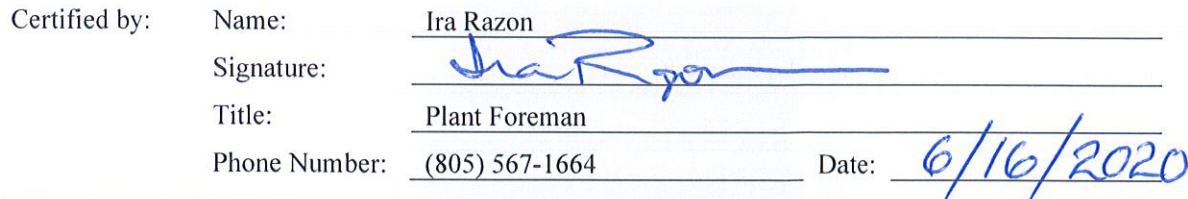 Certified by: Name: Ira Razon
Signature: Ira Razon
Title: Plant Foreman
Phone Number: (805) 567-1664 Date: 6/16/2020